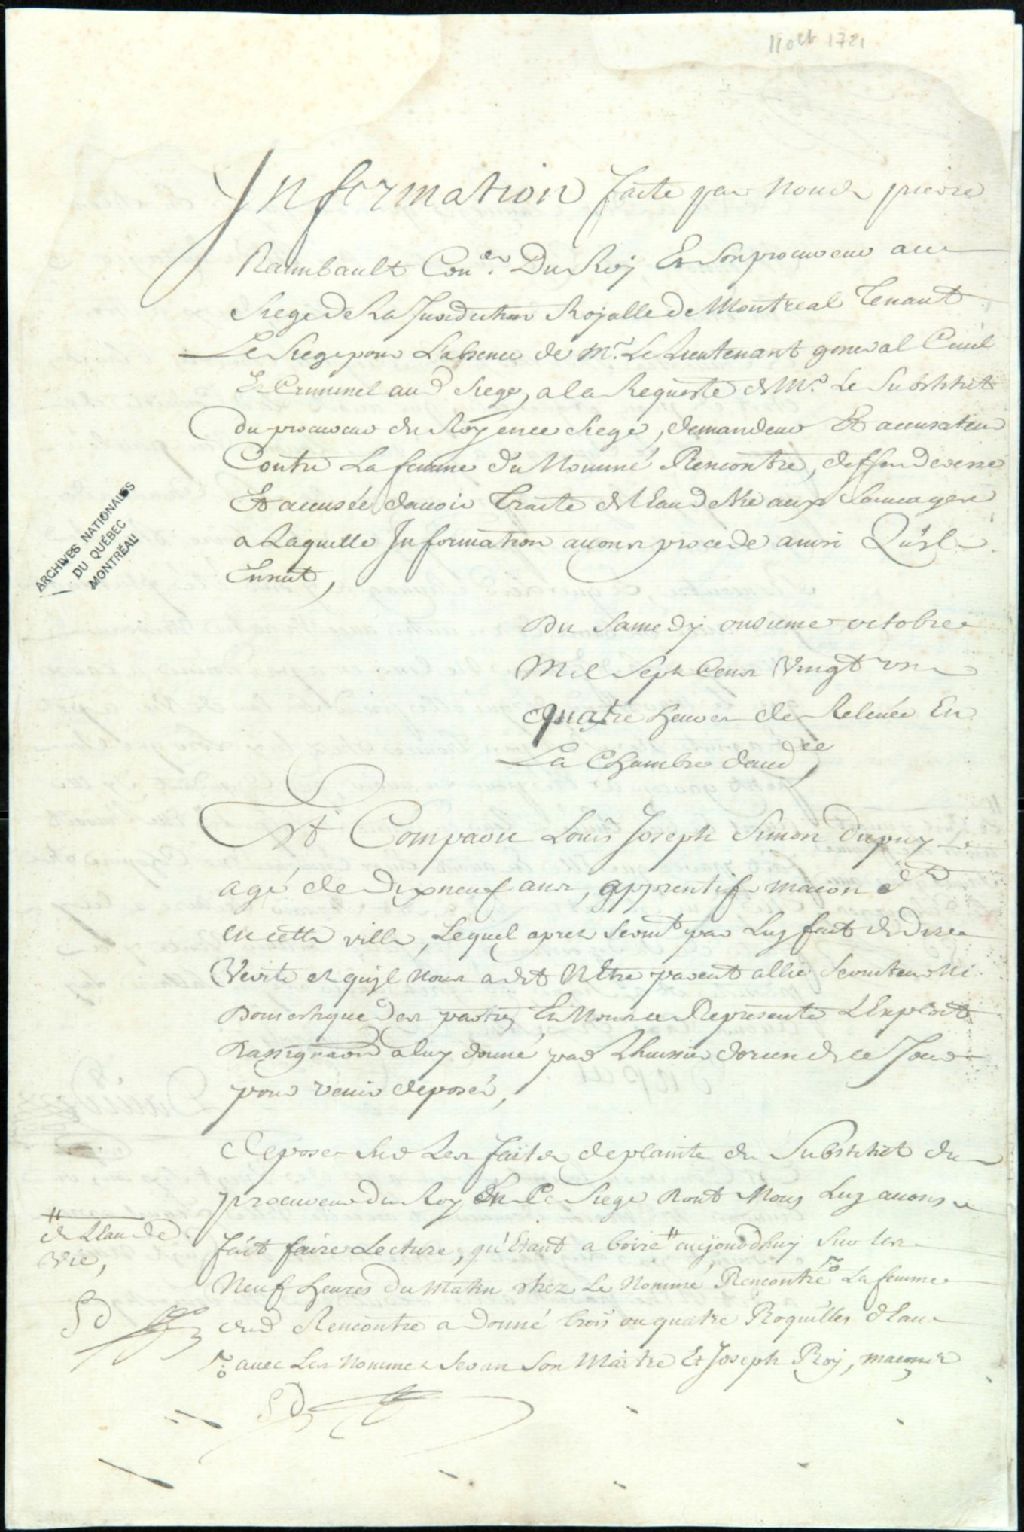 11 oct 1721
Information faite par Nous pierre
Raimbault Con.er Du Roy Et son procureur au
Siege de La Jurisdiction Royalle de Montreal Tenant
Le Siege pour Labsence de Mr. Le Lieutenant general Civil
& Criminel aud. Siege, a la Requeste de Mr. Le Substitut
du procureur du Roy en ce siege, demandeur Et accusateur
Contre La femme du Nommé Rencontre, deffenderesse
Et accusée davoir Traitté de Leau de Vie aux Sauvages
a Laquelle Information avons procede ainsi Qu'il
Ensuit,
ARCHIVES NATIONALES
DU QUÉBEC
MONTRÉAL
Du Samedy onzieme octobre
Mil Sept Cens Vingt un
quatre heures de Relevée En
La Chambre daud.ce
Est Comparu Louis Joseph Simon dupuy
agé de Dix neuf ans, apprentif macon
en cette ville, Lequel apres Serm.t par Luy fait de dire
Verité et qu'il Nous a dit N'Etre parent allié Serviteur Ni
Domestique des parties Et Nous a Represente L'Exploit
Dassignaon a luy donné par Lhuissier de ce Jour
pour venir deposer,
Depose Sur Les faits de plainte du Substitut du
procureur du Roy En Ce Siege Dont Nous Luy avons
fait faire Lecture, qu'Etant a boire # aujourdhuy Sur les
# de Leau de
vie,
Neuf Heures du Matin chez Le Nommé Rencontre La femme
dud. Rencontre a donné trois ou quatre Roquilles d'Eau
avec Les Nommés Son Maitre Et Joseph Roy, macons